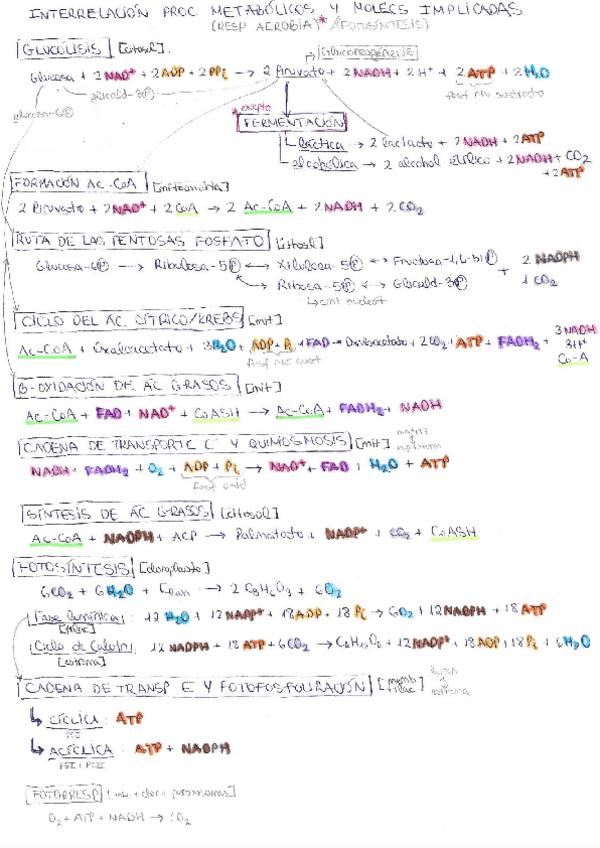 INTERRELACIÓN PROC. METABÓLICOS Y MOLECS IMPLICADAS
(RESP AEROBIA)* / (FOTOSÍNTESIS)
GLUCÓLISIS [citosol].
Gluconeogénesis
Glucosa + 2 NAD+ + 2 ADP + 2 Pi → 2 Piruvato + 2 NADH + 2 H+ + 2 ATP + 2 H2O
glucosa-6P glicerald-3P fosf niv sustrato
* excepto
FERMENTACIÓN
láctica → 2 lactato + 2 NADH + 2 ATP
alcohólica → 2 alcohol etílico + 2 NADH + CO2 + 2 ATP
FORMACIÓN AC-CoA [mitocondria]
2 Piruvato + 2 NAD+ + 2 CoA → 2 Ac-CoA + 2 NADH + 2 CO2
RUTA DE LAS PENTOSAS FOSFATO [citosol]
Glucosa-6P → Ribulosa-5P ↔ Xilulosa-5P ↔ Fructosa-1,6-biP + 2 NADPH
Ribosa-5P ↔ Glicerald-3P 1 CO2
CICLO DEL AC. CÍTRICO/KREBS [mit]
Ac-CoA + Oxalacetato + 3 H2O + ADP + Pi + FAD → Oxalacetato + 2 CO2 + ATP + FADH2 + 3 NADH 3H+ Co-A
fosf niv sust
β-OXIDACIÓN DE ÁC GRASOS [mit]
Ac-CoA + FAD + NAD+ + CoASH → Ac-CoA + FADH2 + NADH
CADENA DE TRANSPORTE E Y QUIMIOSMOSIS [mit]
NADH + FADH2 + O2 + ADP + Pi → NAD+ + FAD + H2O + ATP
fosf oxid
SÍNTESIS DE ÁC GRASOS [citosol]
Ac-CoA + NADPH + ACP → Palmitato + NADP+ + CO2 + CoASH
FOTOSÍNTESIS [cloroplasto]
6 CO2 + 6 H2O + → + 6 O2
Fase lumínica: 12 H2O + 12 NADP+ + 18 ADP + 18 Pi → 6 O2 + 12 NADPH + 18 ATP
Ciclo de Calvin: 12 NADPH + 18 ATP + 6 CO2 → C6H12O6 + 12 NADP+ + 18 ADP + 18 Pi + 6 H2O
[estroma]
CADENA DE TRANSP E Y FOTOFOSFORILACIÓN [memb tilac] lumen estroma
CÍCLICA: ATP
PSI
ACÍCLICA: ATP + NADPH
PSI + PSII
FOTORRESP [mit + clor + peroxisomas]
O2 + ATP + NADH → CO2